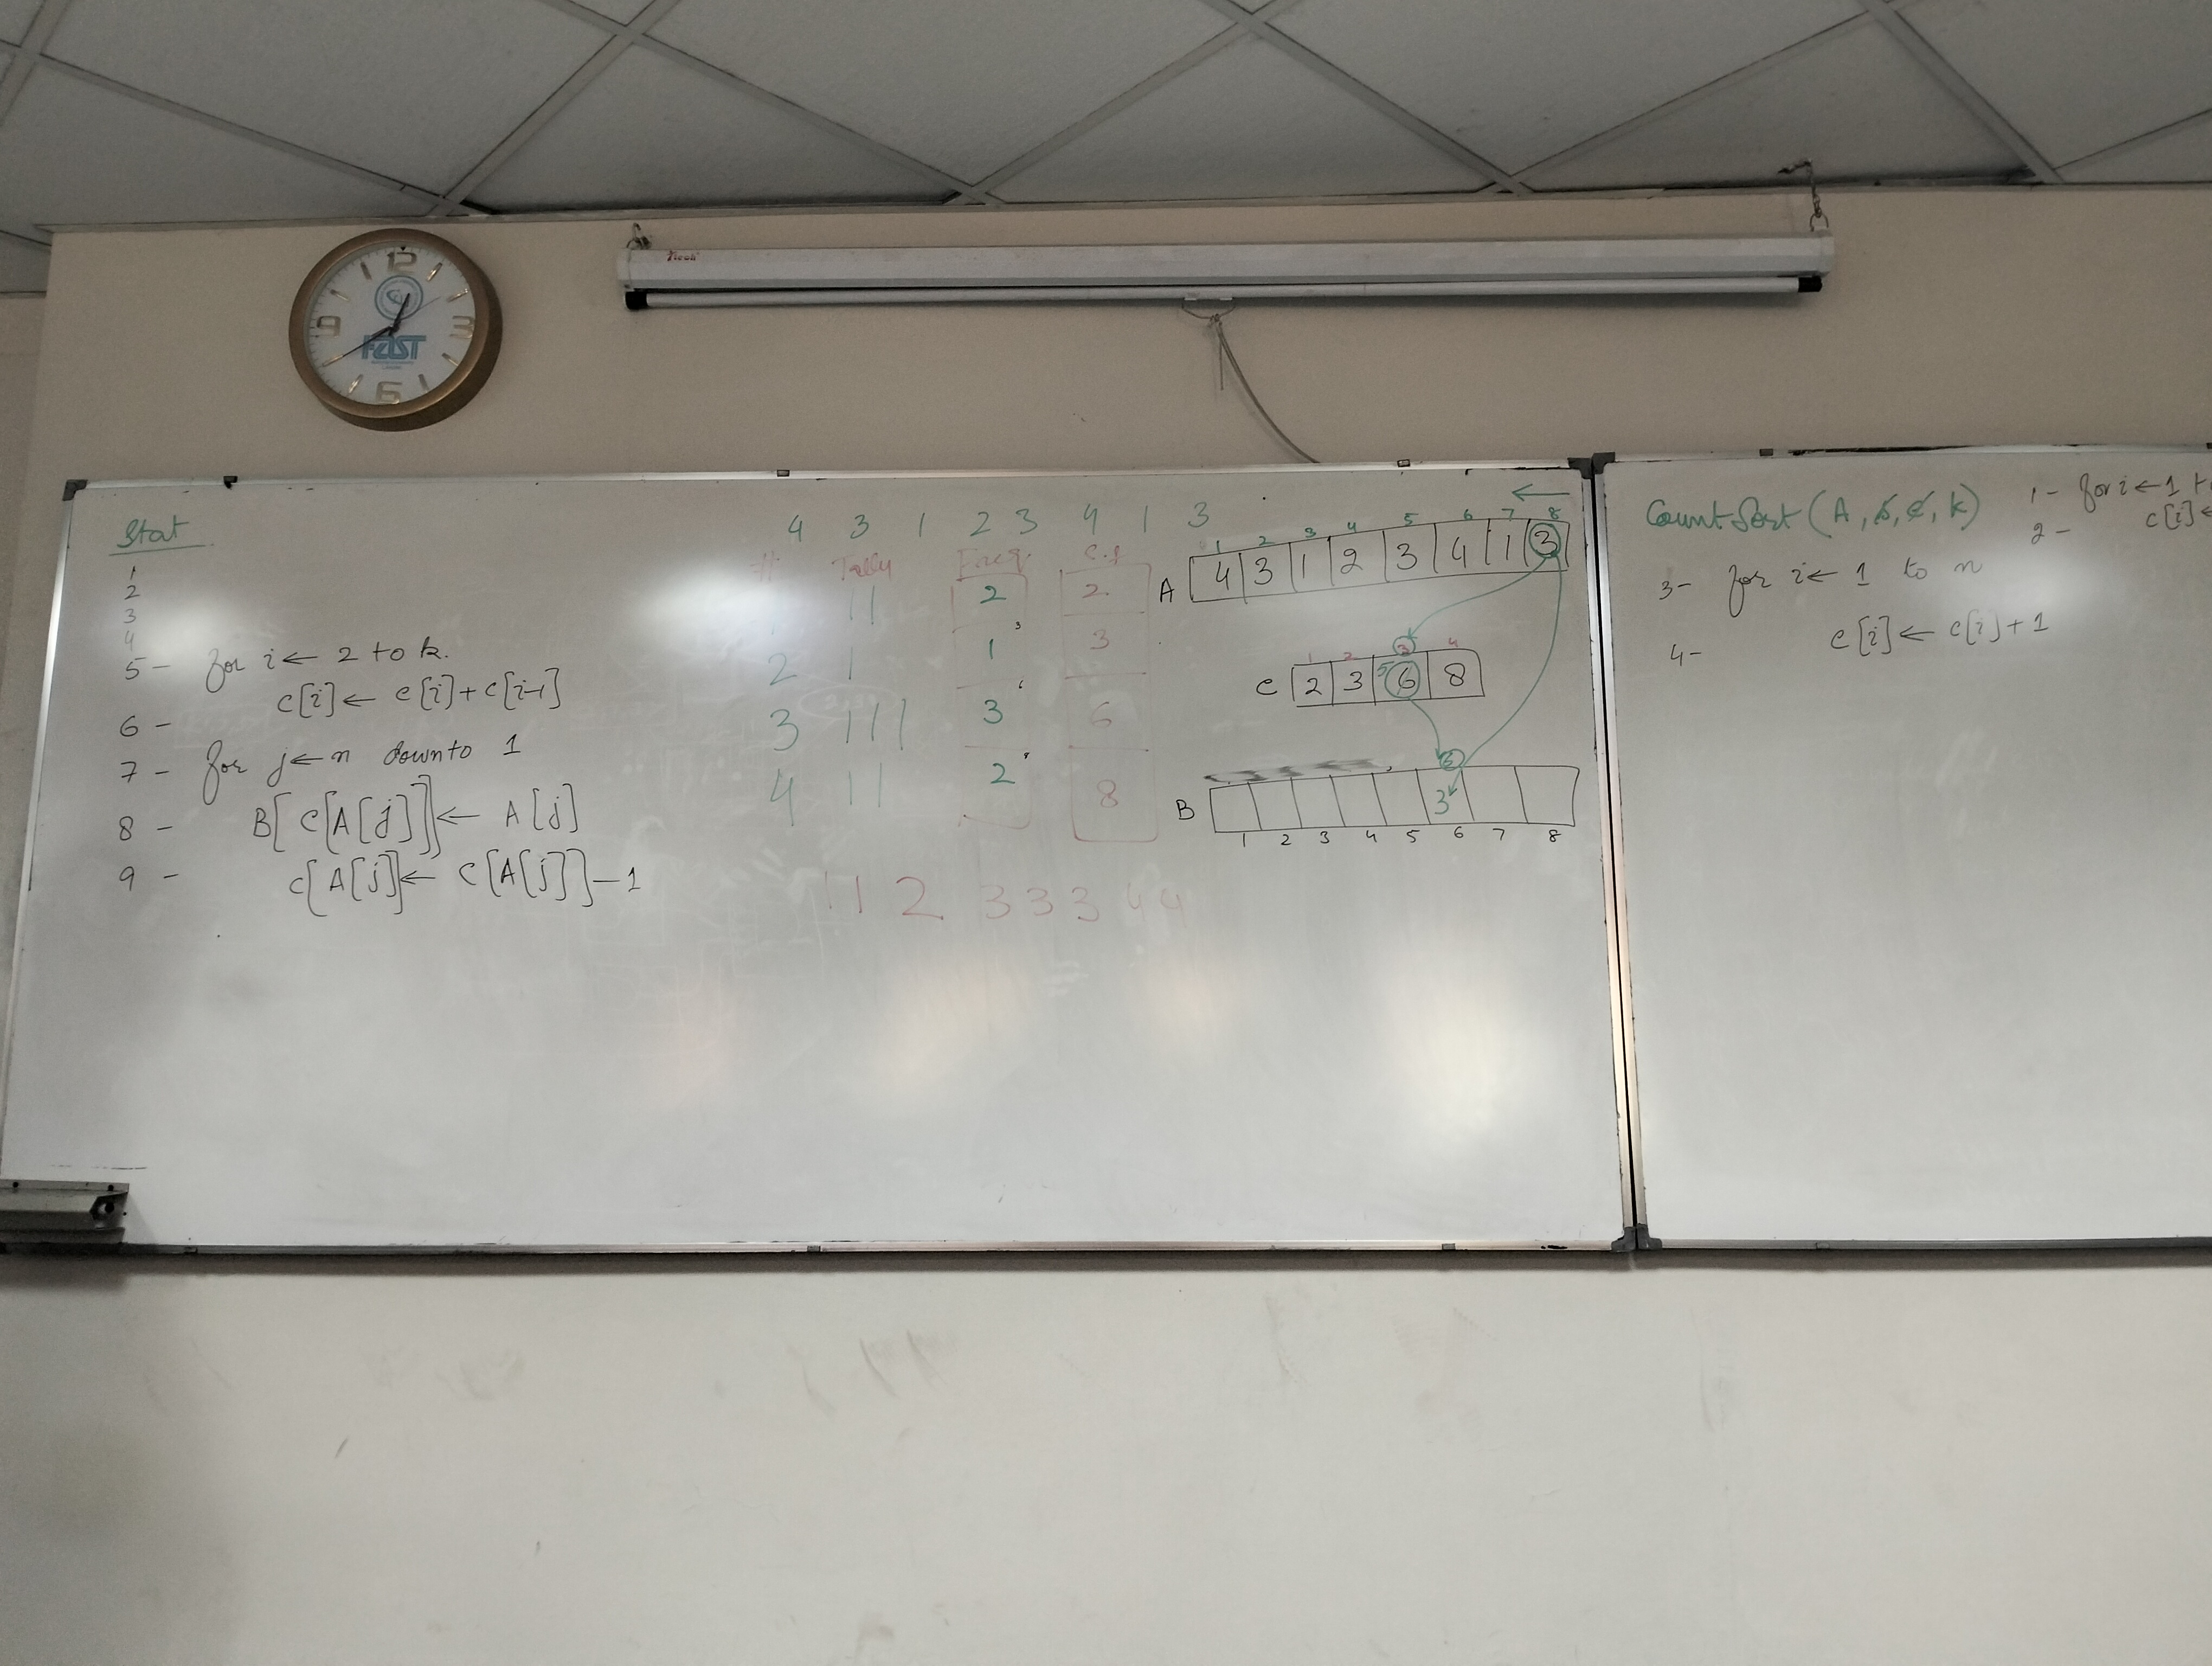 12
3
6
9
FAST
Stat
1
2
3
4
5 - for i ← 2 to k.
6 - c[i] ← c[i] + c[i-1]
7 - for j ← n down to 1
8 - B[C[A[j]]] ← A[j]
9 - C[A[j]] ← C[A[j]] - 1
4 3 1 2 3 4 1 3
# Tally Freq. C.f
|| 2 2
2 | 1 3 3
3 ||| 3 6 6
4 || 2 8 8
1 1 2 3 3 3 4 4
←
1 2 3 4 5 6 7 8
A 4 3 1 2 3 4 1 3
1 2 3 4
C 2 3 5 6 8
6
B 3
1 2 3 4 5 6 7 8
Count Sort (A, B, C, k)
1 - for i ← 1 to
2 - c[i] ←
3 - for i ← 1 to n
4 - c[i] ← c[i] + 1